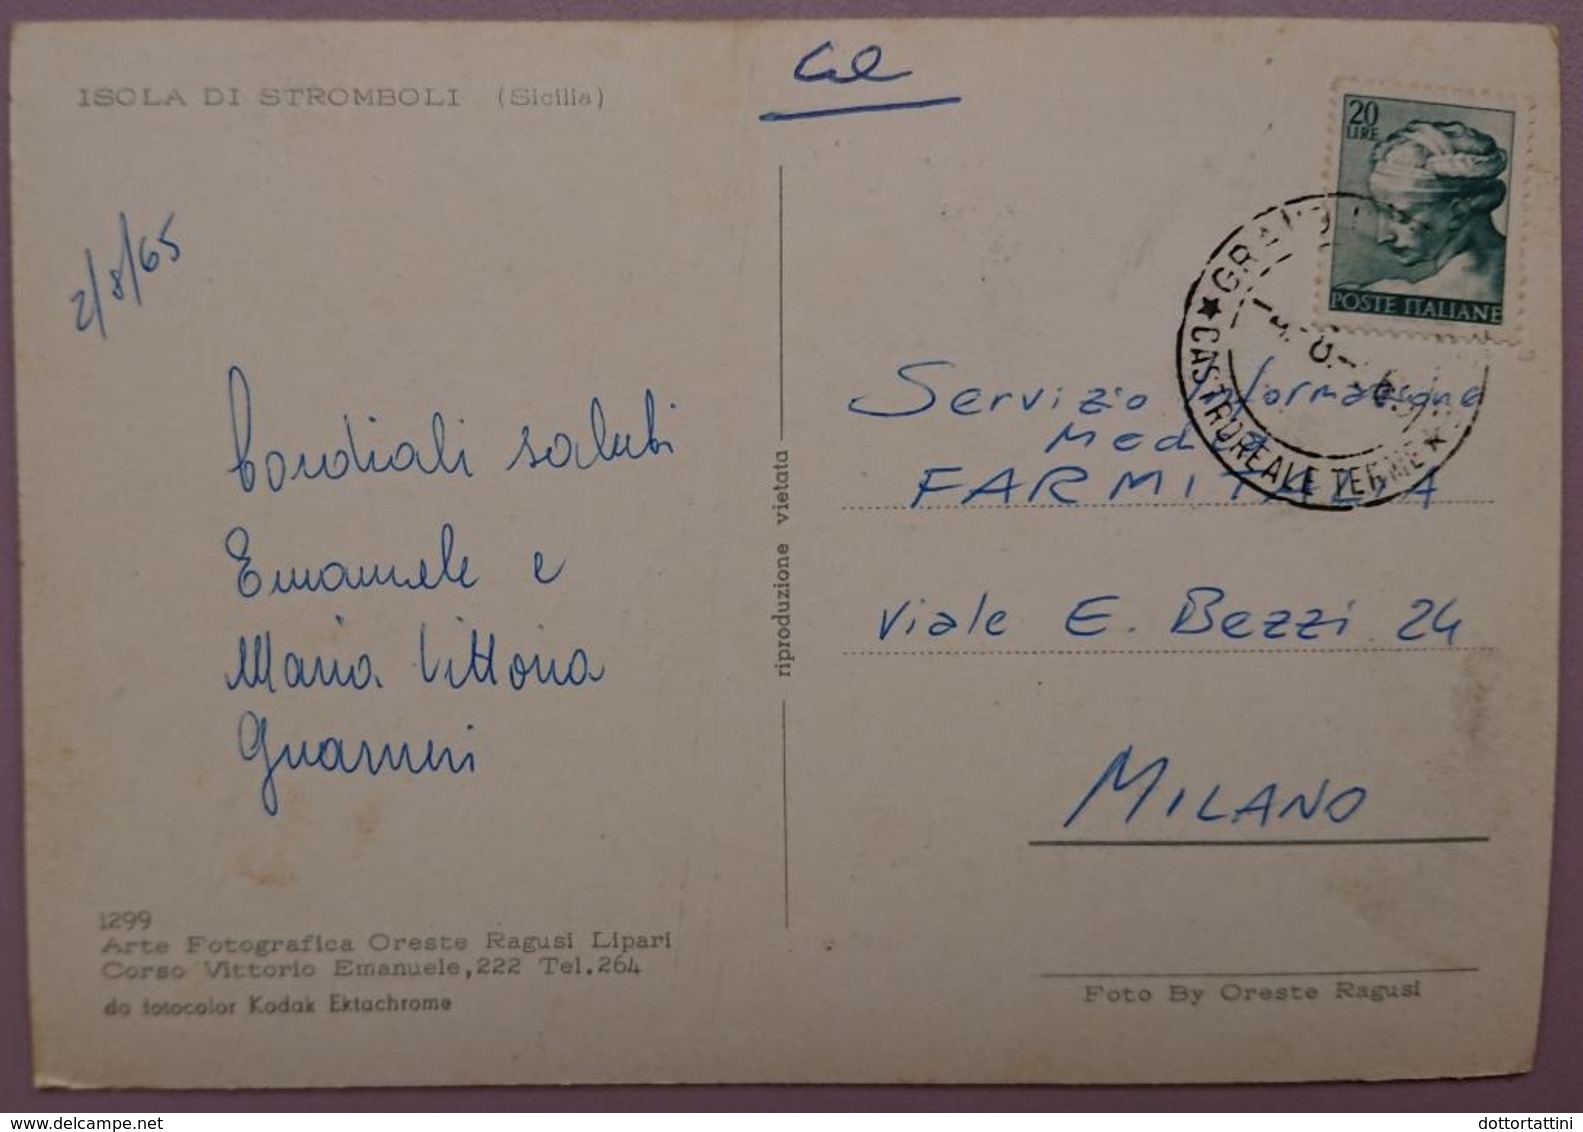 ISOLA DI STROMBOLI (Sicilia)
2/8/65
Cordiali saluti
Emanuele e
Maria Vittoria
Guarneri
1299
Arte Fotografica Oreste Ragusi Lipari
Corso Vittorio Emanuele, 222 Tel. 264
da fotocolor Kodak Ektachrome
riproduzione vietata
20
LIRE
POSTE ITALIANE
CASTROREALE TERME
Servizio Informazione
FARMITALIA
Viale E. Bezzi 24
MILANO
Foto By Oreste Ragusi
www.delcampe.net
dottortattini